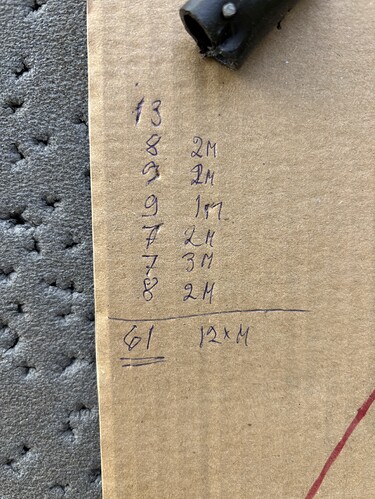 13
8 2M
9 2M
9 1M
7 2M
7 3M
8 2M
61 12xM